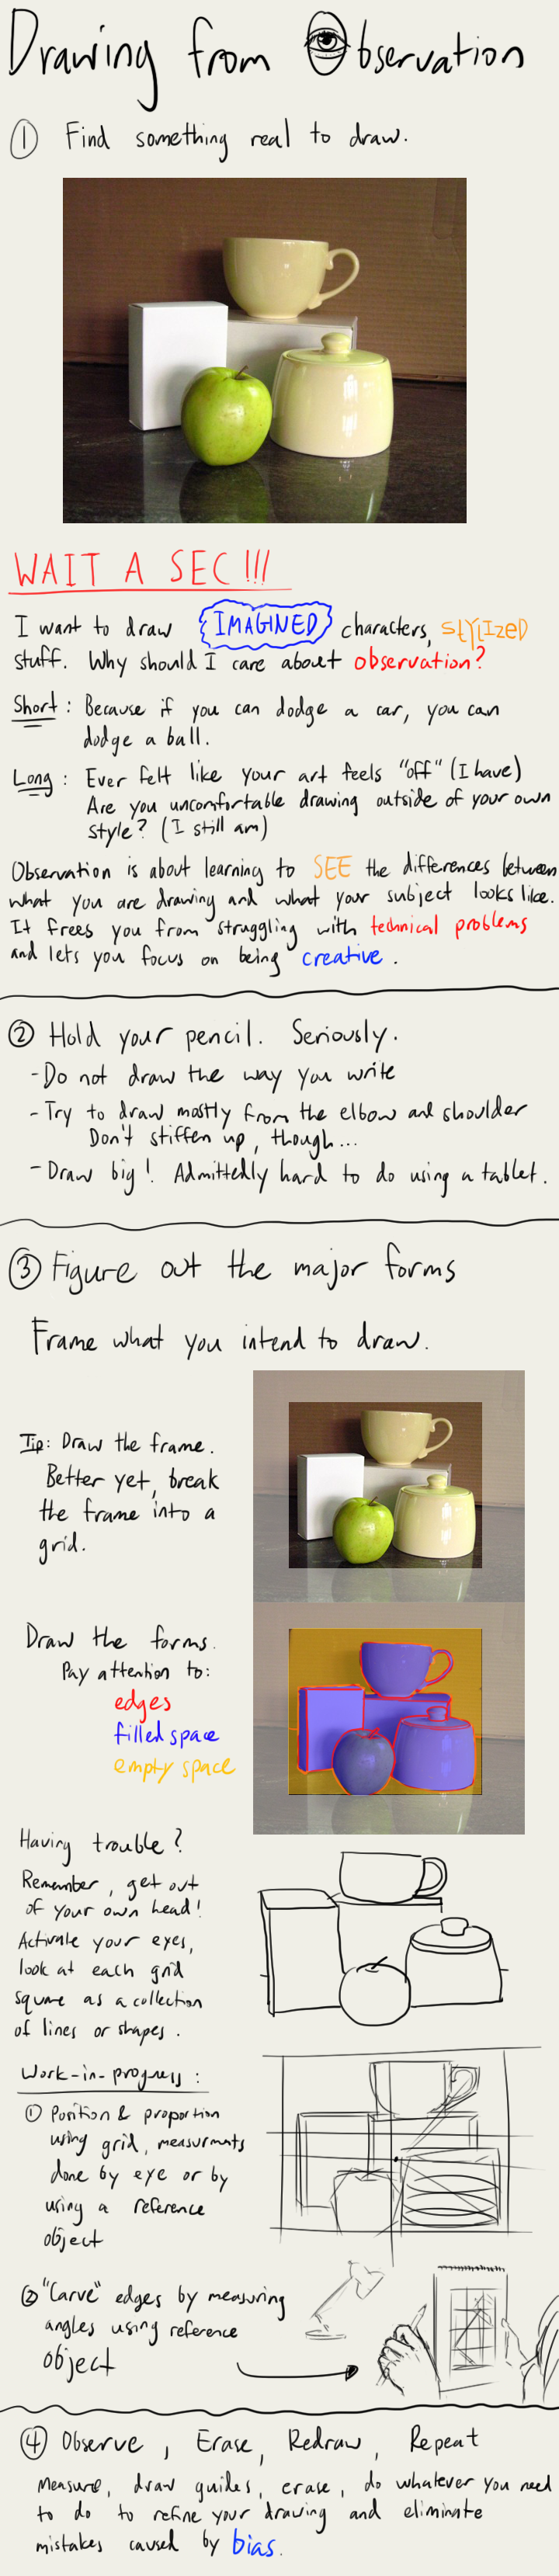 Drawing from Observation
① Find something real to draw.
WAIT A SEC!!!
I want to draw IMAGINED characters, stylized
stuff. Why should I care about observation?
Short: Because if you can dodge a car, you can
dodge a ball.
Long: Ever felt like your art feels "off" (I have)
Are you uncomfortable drawing outside of your own
style? (I still am)
Observation is about learning to SEE the differences between
what you are drawing and what your subject looks like.
It frees you from struggling with technical problems
and lets you focus on being creative.
② Hold your pencil. Seriously.
- Do not draw the way you write
- Try to draw mostly from the elbow and shoulder
Don't stiffen up, though...
- Draw big! Admittedly hard to do using a tablet.
③ Figure out the major forms
Frame what you intend to draw.
Tip: Draw the frame.
Better yet, break
the frame into a
grid.
Draw the forms.
Pay attention to:
edges
filled space
empty space
Having trouble?
Remember, get out
of your own head!
Activate your eyes,
look at each grid
square as a collection
of lines or shapes.
Work-in-progress:
① Position & proportion
using grid, measurments
done by eye or by
using a reference
object
② "Carve" edges by measuring
angles using reference
object
④ Observe, Erase, Redraw, Repeat
Measure, draw guides, erase, do whatever you need
to do to refine your drawing and eliminate
mistakes caused by bias.